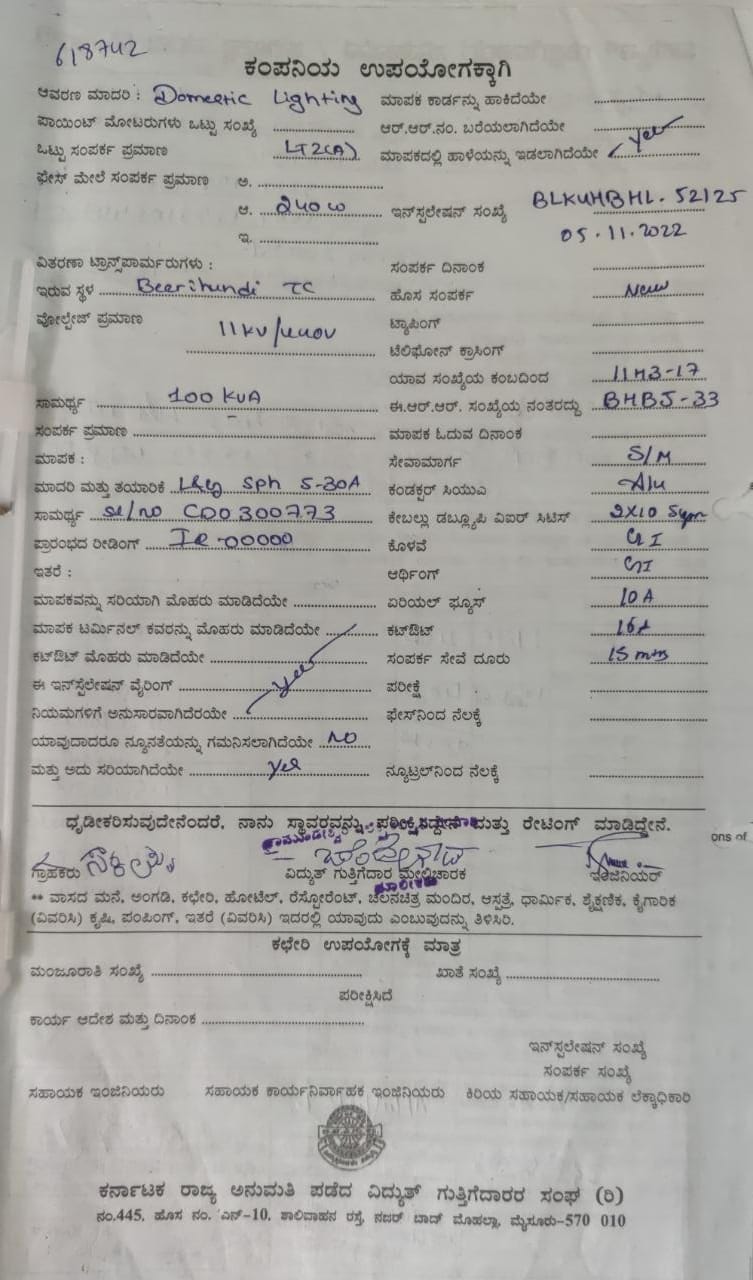 618742
ಕಂಪನಿಯ ಉಪಯೋಗಕ್ಕಾಗಿ
ಆವರಣ ಮಾದರಿ : Domestic Lighting ಮಾಪಕ ಕಾರ್ಡನ್ನು ಹಾಕಿದೆಯೇ
ಪಾಯಿಂಟ್ ಮೋಟರುಗಳು ಒಟ್ಟು ಸಂಖ್ಯೆ ಆರ್.ಆರ್.ನಂ. ಬರೆಯಲಾಗಿದೆಯೇ
ಒಟ್ಟು ಸಂಪರ್ಕ ಪ್ರಮಾಣ LT2(A) ಮಾಪಕದಲ್ಲಿ ಹಾಳೆಯನ್ನು ಇಡಲಾಗಿದೆಯೇ yes
ಫೇಸ್ ಮೇಲೆ ಸಂಪರ್ಕ ಪ್ರಮಾಣ ಅ.
ಆ. 240 W ಇನ್‌ಸ್ಟಲೇಷನ್ ಸಂಖ್ಯೆ BLKUHBHL. 52125
ಇ. 05.11.2022
ವಿತರಣಾ ಟ್ರಾನ್ಸ್‌ಪಾರ್ಮರುಗಳು : ಸಂಪರ್ಕ ದಿನಾಂಕ
ಇರುವ ಸ್ಥಳ Beerihundi TC ಹೊಸ ಸಂಪರ್ಕ New
ವೋಲ್ಟೇಜ್ ಪ್ರಮಾಣ 11KV/440V ಟ್ಯಾಪಿಂಗ್
ಟೆಲಿಫೋನ್ ಕ್ರಾಸಿಂಗ್
ಯಾವ ಸಂಖ್ಯೆಯ ಕಂಬದಿಂದ 11H3-17
ಸಾಮರ್ಥ್ಯ 100 KVA ಈ.ಆರ್.ಆರ್. ಸಂಖ್ಯೆಯ ನಂತರದ್ದು BHBJ-33
ಸಂಪರ್ಕ ಪ್ರಮಾಣ ಮಾಪಕ ಓದುವ ದಿನಾಂಕ
ಮಾಪಕ : ಸೇವಾಮಾರ್ಗ S/M
ಮಾದರಿ ಮತ್ತು ತಯಾರಿಕೆ L&G Sph 5-30A ಕಂಡಕ್ಟರ್ ಸಿಯುಎ Alu
ಸಾಮರ್ಥ್ಯ Sl/no CD0300773 ಕೇಬಲ್ಲು ಡಬ್ಲ್ಯೂಪಿ ವಿಐರ್ ಸಿಟಿಸ್ 2X10 Sqm
ಪ್ರಾರಂಭದ ರೀಡಿಂಗ್ IR-00000 ಕೊಳವೆ GI
ಇತರೆ : ಆರ್ಥಿಂಗ್ GI
ಮಾಪಕವನ್ನು ಸರಿಯಾಗಿ ಮೊಹರು ಮಾಡಿದೆಯೇ ಏರಿಯಲ್ ಫ್ಯೂಸ್ 10A
ಮಾಪಕ ಟರ್ಮಿನಲ್ ಕವರನ್ನು ಮೊಹರು ಮಾಡಿದೆಯೇ ಕಟ್‌ಔಟ್ 16A
ಕಟ್‌ಔಟ್ ಮೊಹರು ಮಾಡಿದೆಯೇ ಸಂಪರ್ಕ ಸೇವೆ ದೂರು 15 mts
ಈ ಇನ್‌ಸ್ಟೆಲೇಷನ್ ವೈರಿಂಗ್ yes ಪರೀಕ್ಷೆ
ನಿಯಮಗಳಿಗೆ ಅನುಸಾರವಾಗಿದೆರಯೇ ಫೇಸ್‌ನಿಂದ ನೆಲಕ್ಕೆ
ಯಾವುದಾದರೂ ನ್ಯೂನತೆಯನ್ನು ಗಮನಿಸಲಾಗಿದೆಯೇ NO
ಮತ್ತು ಅದು ಸರಿಯಾಗಿದೆಯೇ yes ನ್ಯೂಟ್ರಲ್‌ನಿಂದ ನೆಲಕ್ಕೆ
ಧೃಡೀಕರಿಸುವುದೇನೆಂದರೆ, ನಾನು ಸ್ಥಾವರವನ್ನು ಪರೀಕ್ಷಿಸಿದ್ದೇನೆ ಮತ್ತು ರೇಟಿಂಗ್ ಮಾಡಿದ್ದೇನೆ.
ons of
ಗ್ರಾಹಕರು ವಿದ್ಯುತ್ ಗುತ್ತಿಗೆದಾರ ಮೇಲ್ವಿಚಾರಕ ಇಂಜಿನಿಯರ್
** ವಾಸದ ಮನೆ, ಅಂಗಡಿ, ಕಛೇರಿ, ಹೋಟೆಲ್, ರೆಸ್ಟೋರೆಂಟ್, ಚಲನಚಿತ್ರ ಮಂದಿರ, ಆಸ್ಪತ್ರೆ, ಧಾರ್ಮಿಕ, ಶೈಕ್ಷಣಿಕ, ಕೈಗಾರಿಕ
(ವಿವರಿಸಿ) ಕೃಷಿ, ಪಂಪಿಂಗ್, ಇತರೆ (ವಿವರಿಸಿ) ಇದರಲ್ಲಿ ಯಾವುದು ಎಂಬುವುದನ್ನು ತಿಳಿಸಿರಿ.
ಕಛೇರಿ ಉಪಯೋಗಕ್ಕೆ ಮಾತ್ರ
ಮಂಜೂರಾತಿ ಸಂಖ್ಯೆ ಖಾತೆ ಸಂಖ್ಯೆ
ಪರೀಕ್ಷಿಸಿದೆ
ಕಾರ್ಯ ಆದೇಶ ಮತ್ತು ದಿನಾಂಕ
ಇನ್‌ಸ್ಟಲೇಷನ್ ಸಂಖ್ಯೆ
ಸಂಪರ್ಕ ಸಂಖ್ಯೆ
ಸಹಾಯಕ ಇಂಜಿನಿಯರು ಸಹಾಯಕ ಕಾರ್ಯನಿರ್ವಾಹಕ ಇಂಜಿನಿಯರು ಕಿರಿಯ ಸಹಾಯಕ/ಸಹಾಯಕ ಲೆಕ್ಕಾಧಿಕಾರಿ
ಕರ್ನಾಟಕ ರಾಜ್ಯ ಅನುಮತಿ ಪಡೆದ ವಿದ್ಯುತ್ ಗುತ್ತಿಗೆದಾರರ ಸಂಘ (ರಿ)
ನಂ.445, ಹೊಸ ನಂ. ಎನ್-10, ಶಾಲಿವಾಹನ ರಸ್ತೆ, ನಜರ್ ಬಾದ್ ಮೊಹಲ್ಲಾ, ಮೈಸೂರು-570 010